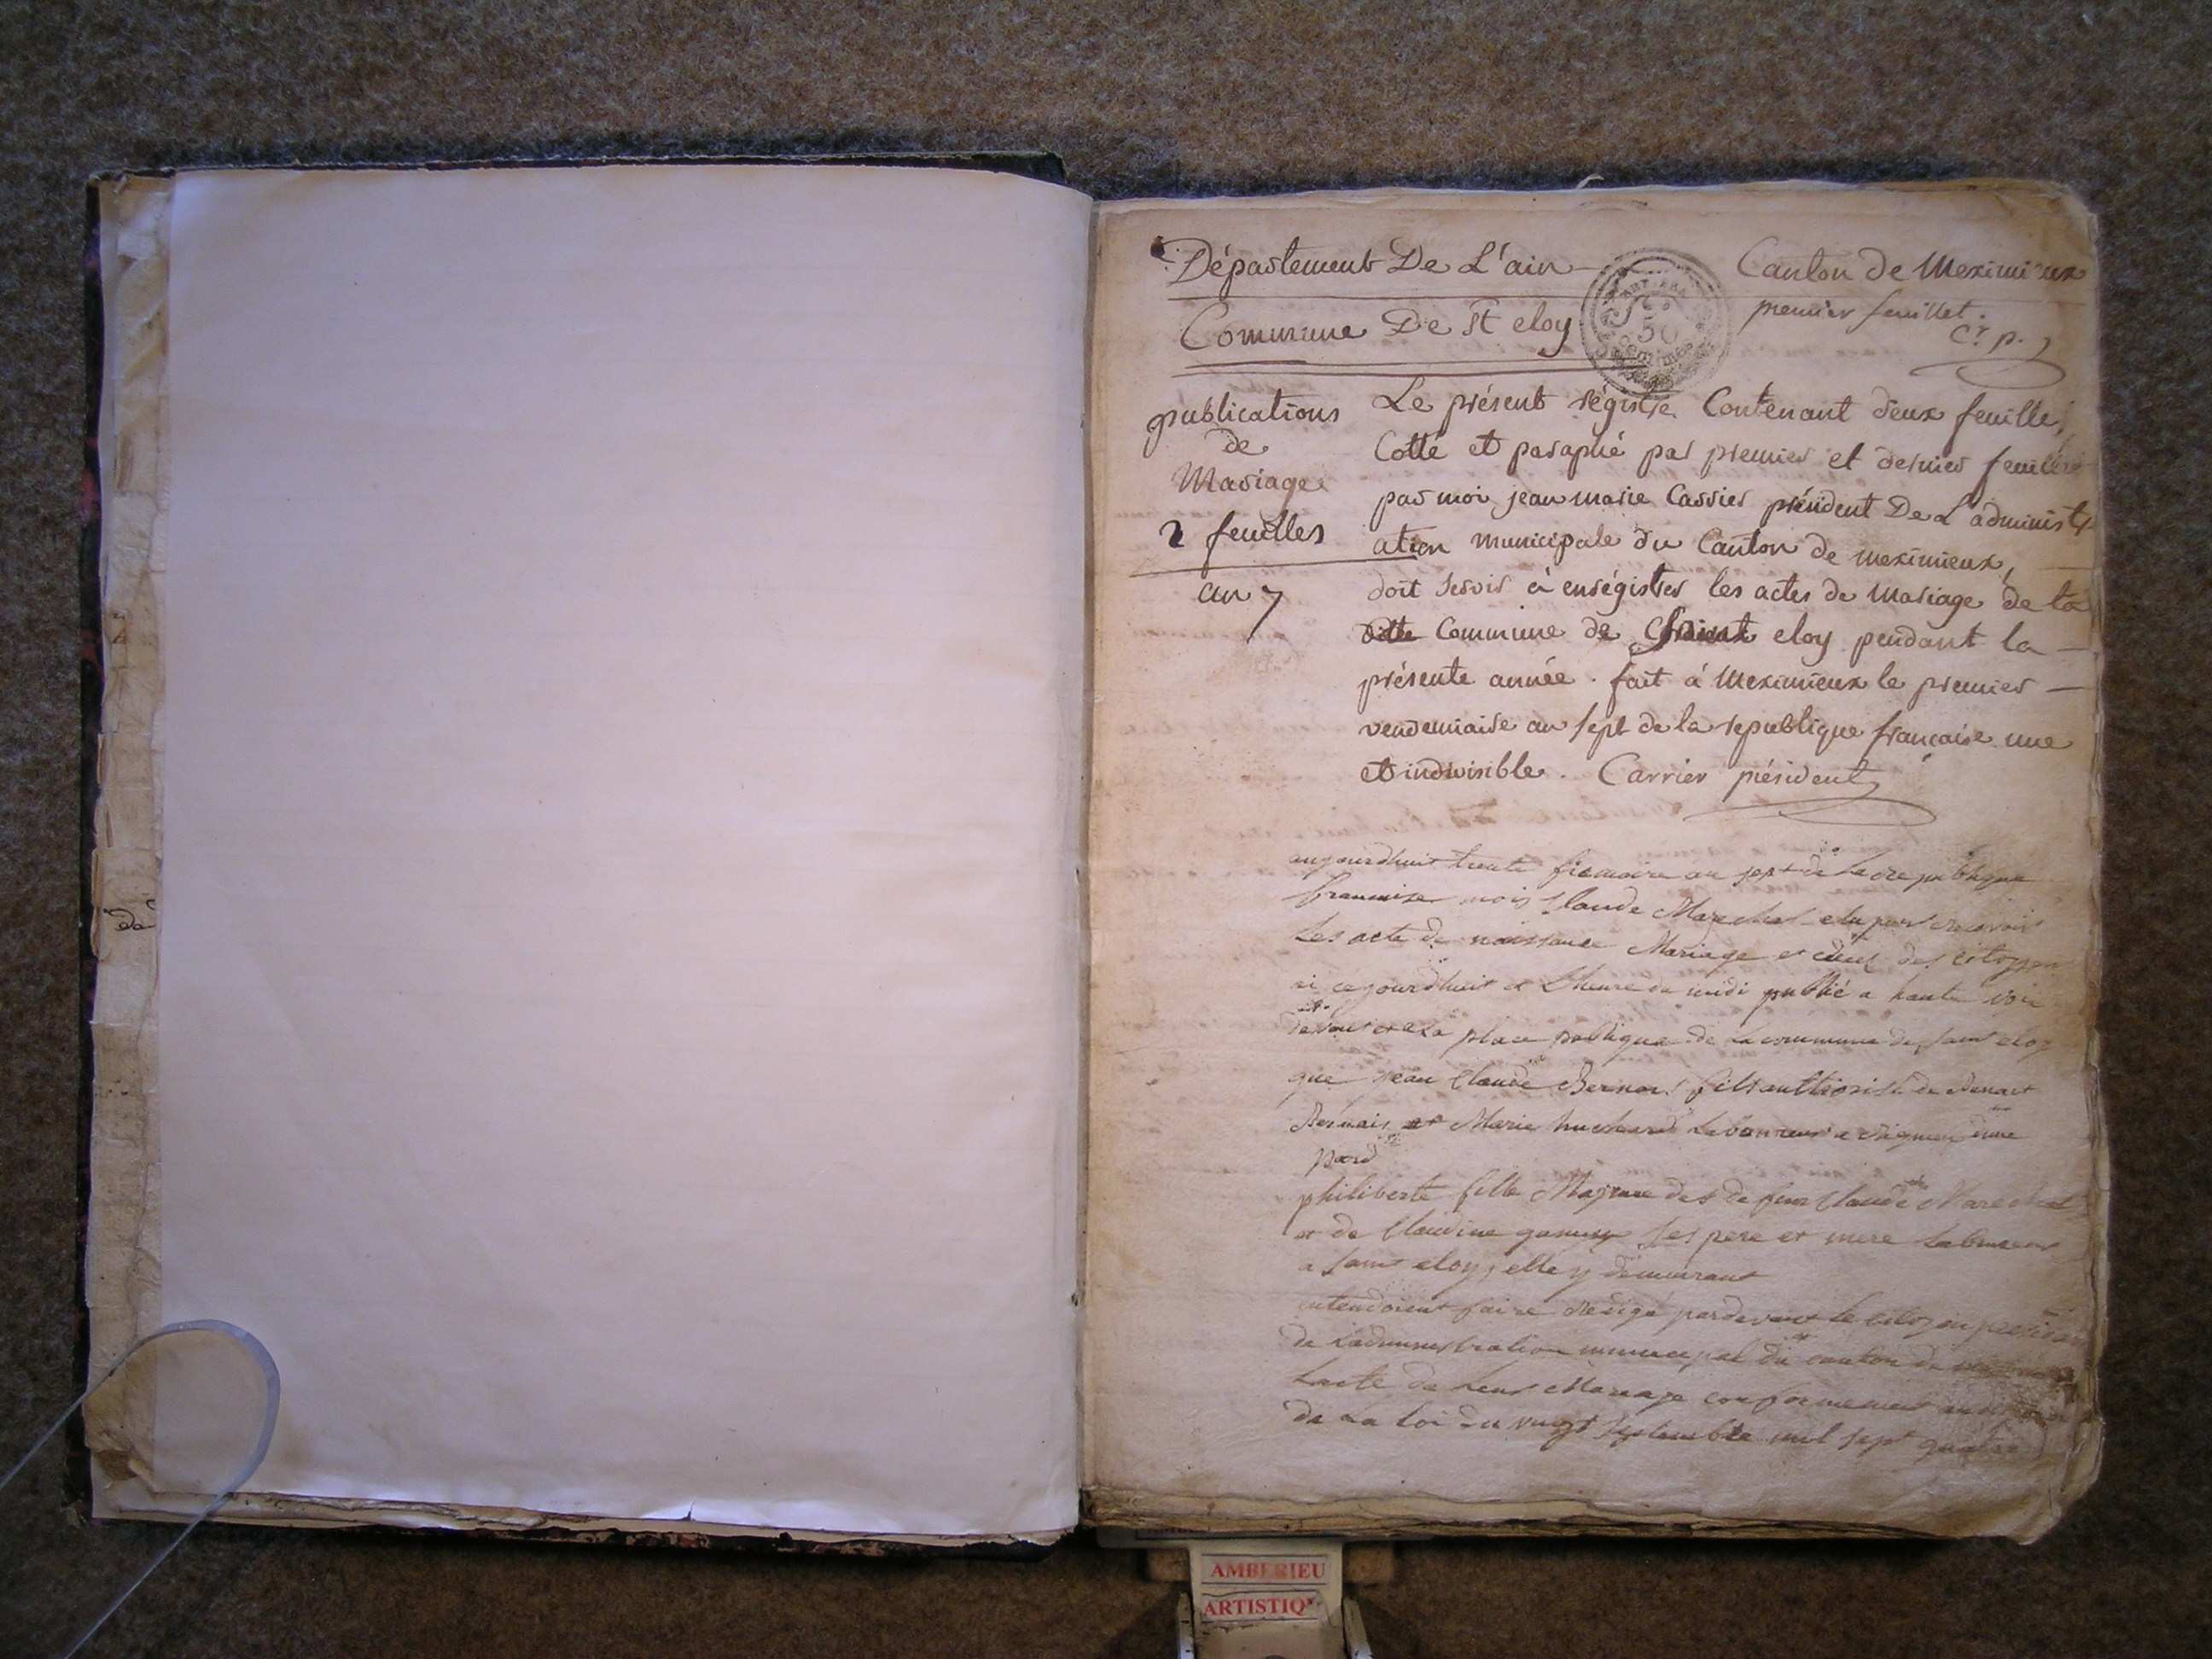 Département De L'ain
Canton de Meximieux
premier feuillet.
Cr. p.
Commune De St eloy
50
Centimes
publications
de
Mariage
2 feuilles
an 7
Le présent régistre Contenant deux feuilles
Cotté et paraphé par premier et dernier feuillet
par moi jean marie Carrier président De L'administr
ation municipale du Canton de meximieux,
doit servir à enrégistrer les actes de Mariage de la
ditte Commune de Saint eloy pendant la
présente année. fait à Meximieux le premier
vendemiaire an sept de la republique française une
et indivisible. Carrier président
aujourdhuit trente frimaire an sept de La republique
francaise moi Claude Marechal elu pour recevoir
Les acte de naissance Mariage et deces des citoyen
ai cejourdhuit et Lheure de midi publié a haute voix
La place publique de La commune de saint eloy
que jean Claude Bernard fils de
et Marie
pard
philiberte fille Majeure de feu Claude Marechal
et de Claudine ses pere et mere Laboureur
a saint eloy, elle y demeurant
entendoient faire redigé pardevant le citoyen
de Ladministration municipal du canton de
Lacte de Leur Mariage conformement
de La loi du vingt septembre mil sept quatre
de
AMBERIEU
ARTISTIQ